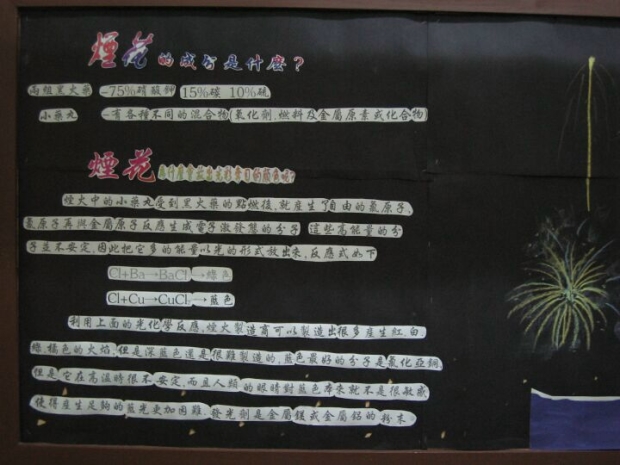 煙花的成分是什麼？
兩組黑火藥 -75%硝酸鉀 15%碳 10%硫
小藥丸 -有各種不同的混合物(氧化劑.燃料及金屬原素或化合物
煙花為什麼會
煙火中的小藥丸受到黑火藥的點燃後,就產生了自由的氯原子,
氯原子再與金屬原子反應生成電子激發態的分子 這些高能量的分
子並不安定,因此把它多的能量以光的形式放出來,反應式如下
Cl+Ba→BaCl→綠色
Cl+Cu→CuCl→藍色
利用上面的光化學反應,煙火製造商可以製造出很多產生紅 白
綠.橘色的火焰,但是深藍色還是很難製造的,藍色最好的分子是氯化亞銅,
但是它在高溫時很不安定,而且人類的眼睛對藍色本來就不是很敏感
使得產生足夠的藍光更加困難.發光劑是金屬鎂或金屬鋁的粉末